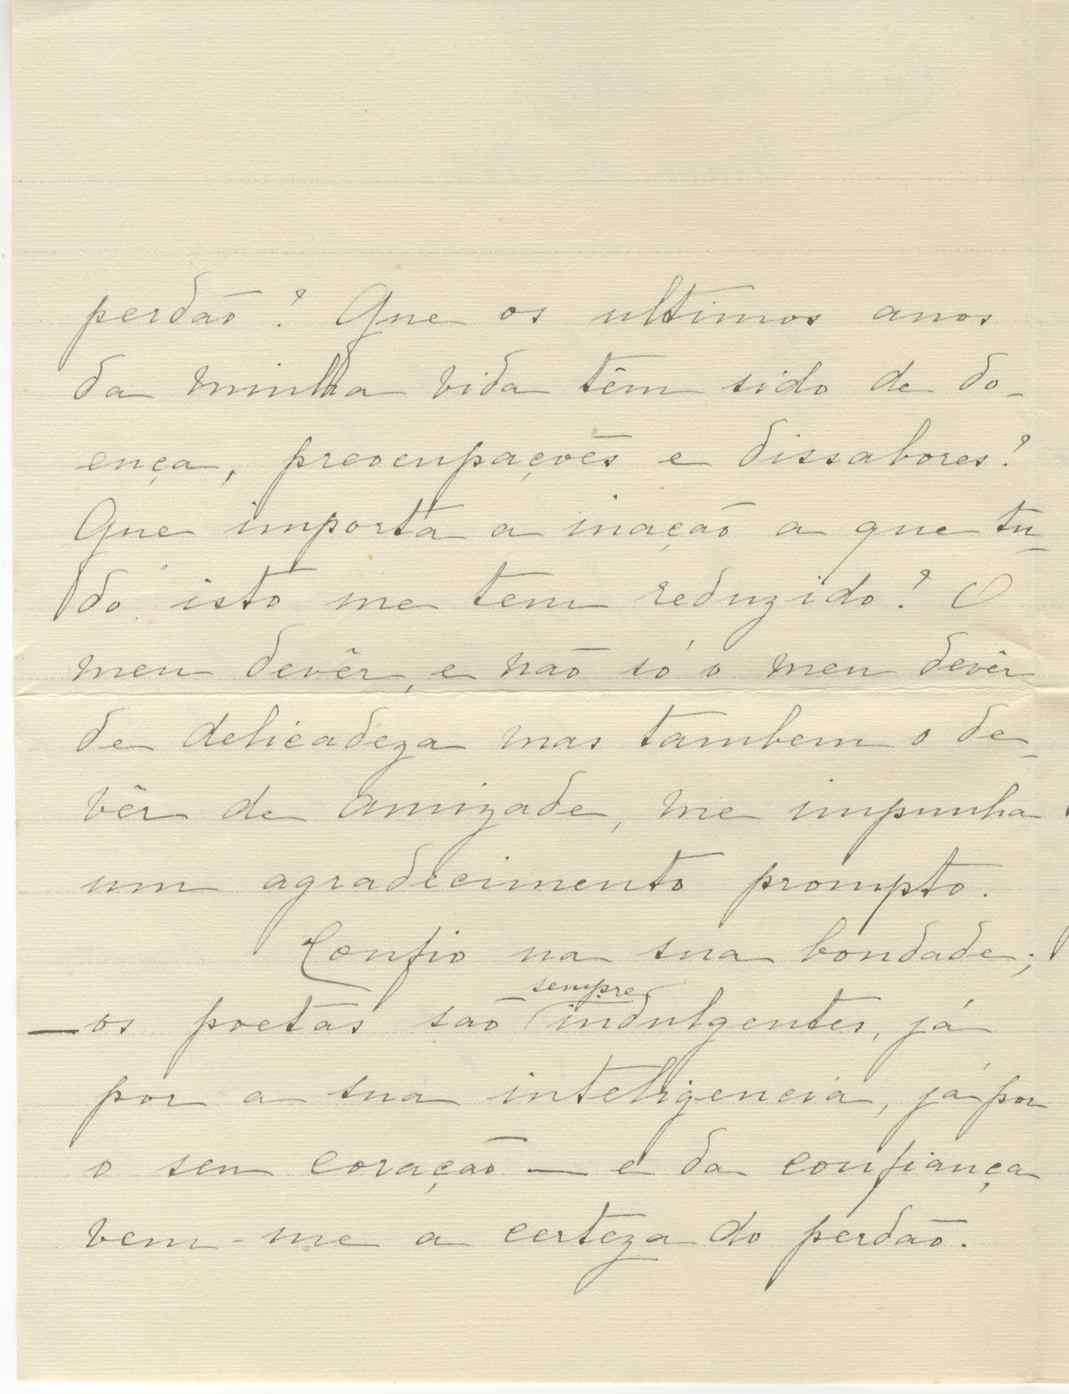 perdão? Que os ultimos anos
da minha vida têm sido de do-
ença, preocupações e dissabores?
Que importa a inação a que tu-
do isto me tem reduzido? O
meu devêr, e não só o meu devêr
de delicadeza mas tambem o de-
vêr de amizade, me impunha
um agradecimento prompto.
Confio na sua bondade;
sempre
— os poetas são indulgentes, já
por a sua inteligencia, já por
o seu coração — e da confiança
vem-me a certeza do perdão.